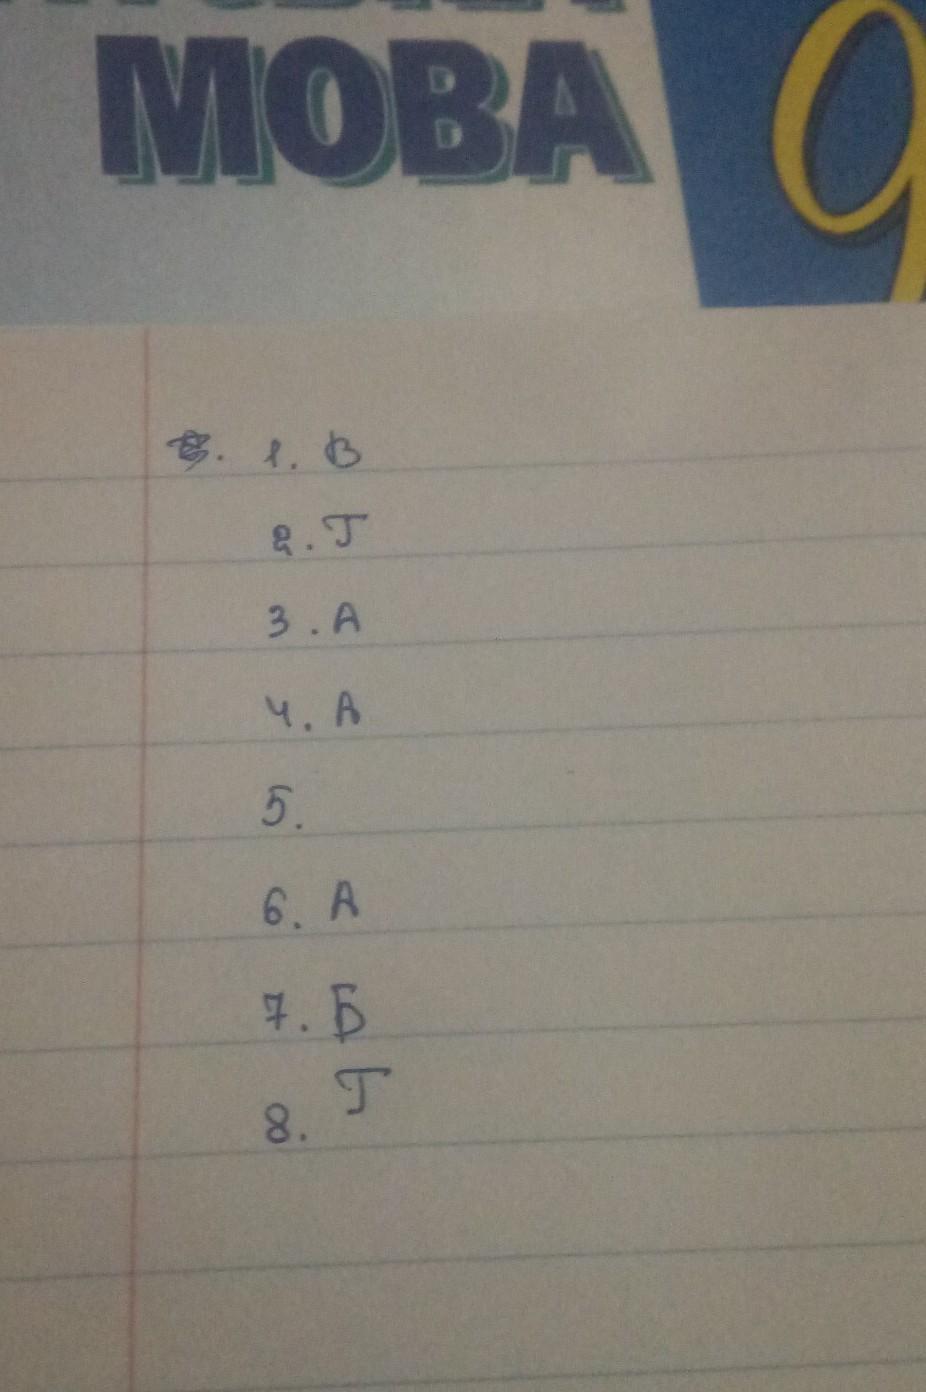 МОВА 9
1. В
2. Г
3. А
4. А
5.
6. А
7. Б
8. Г